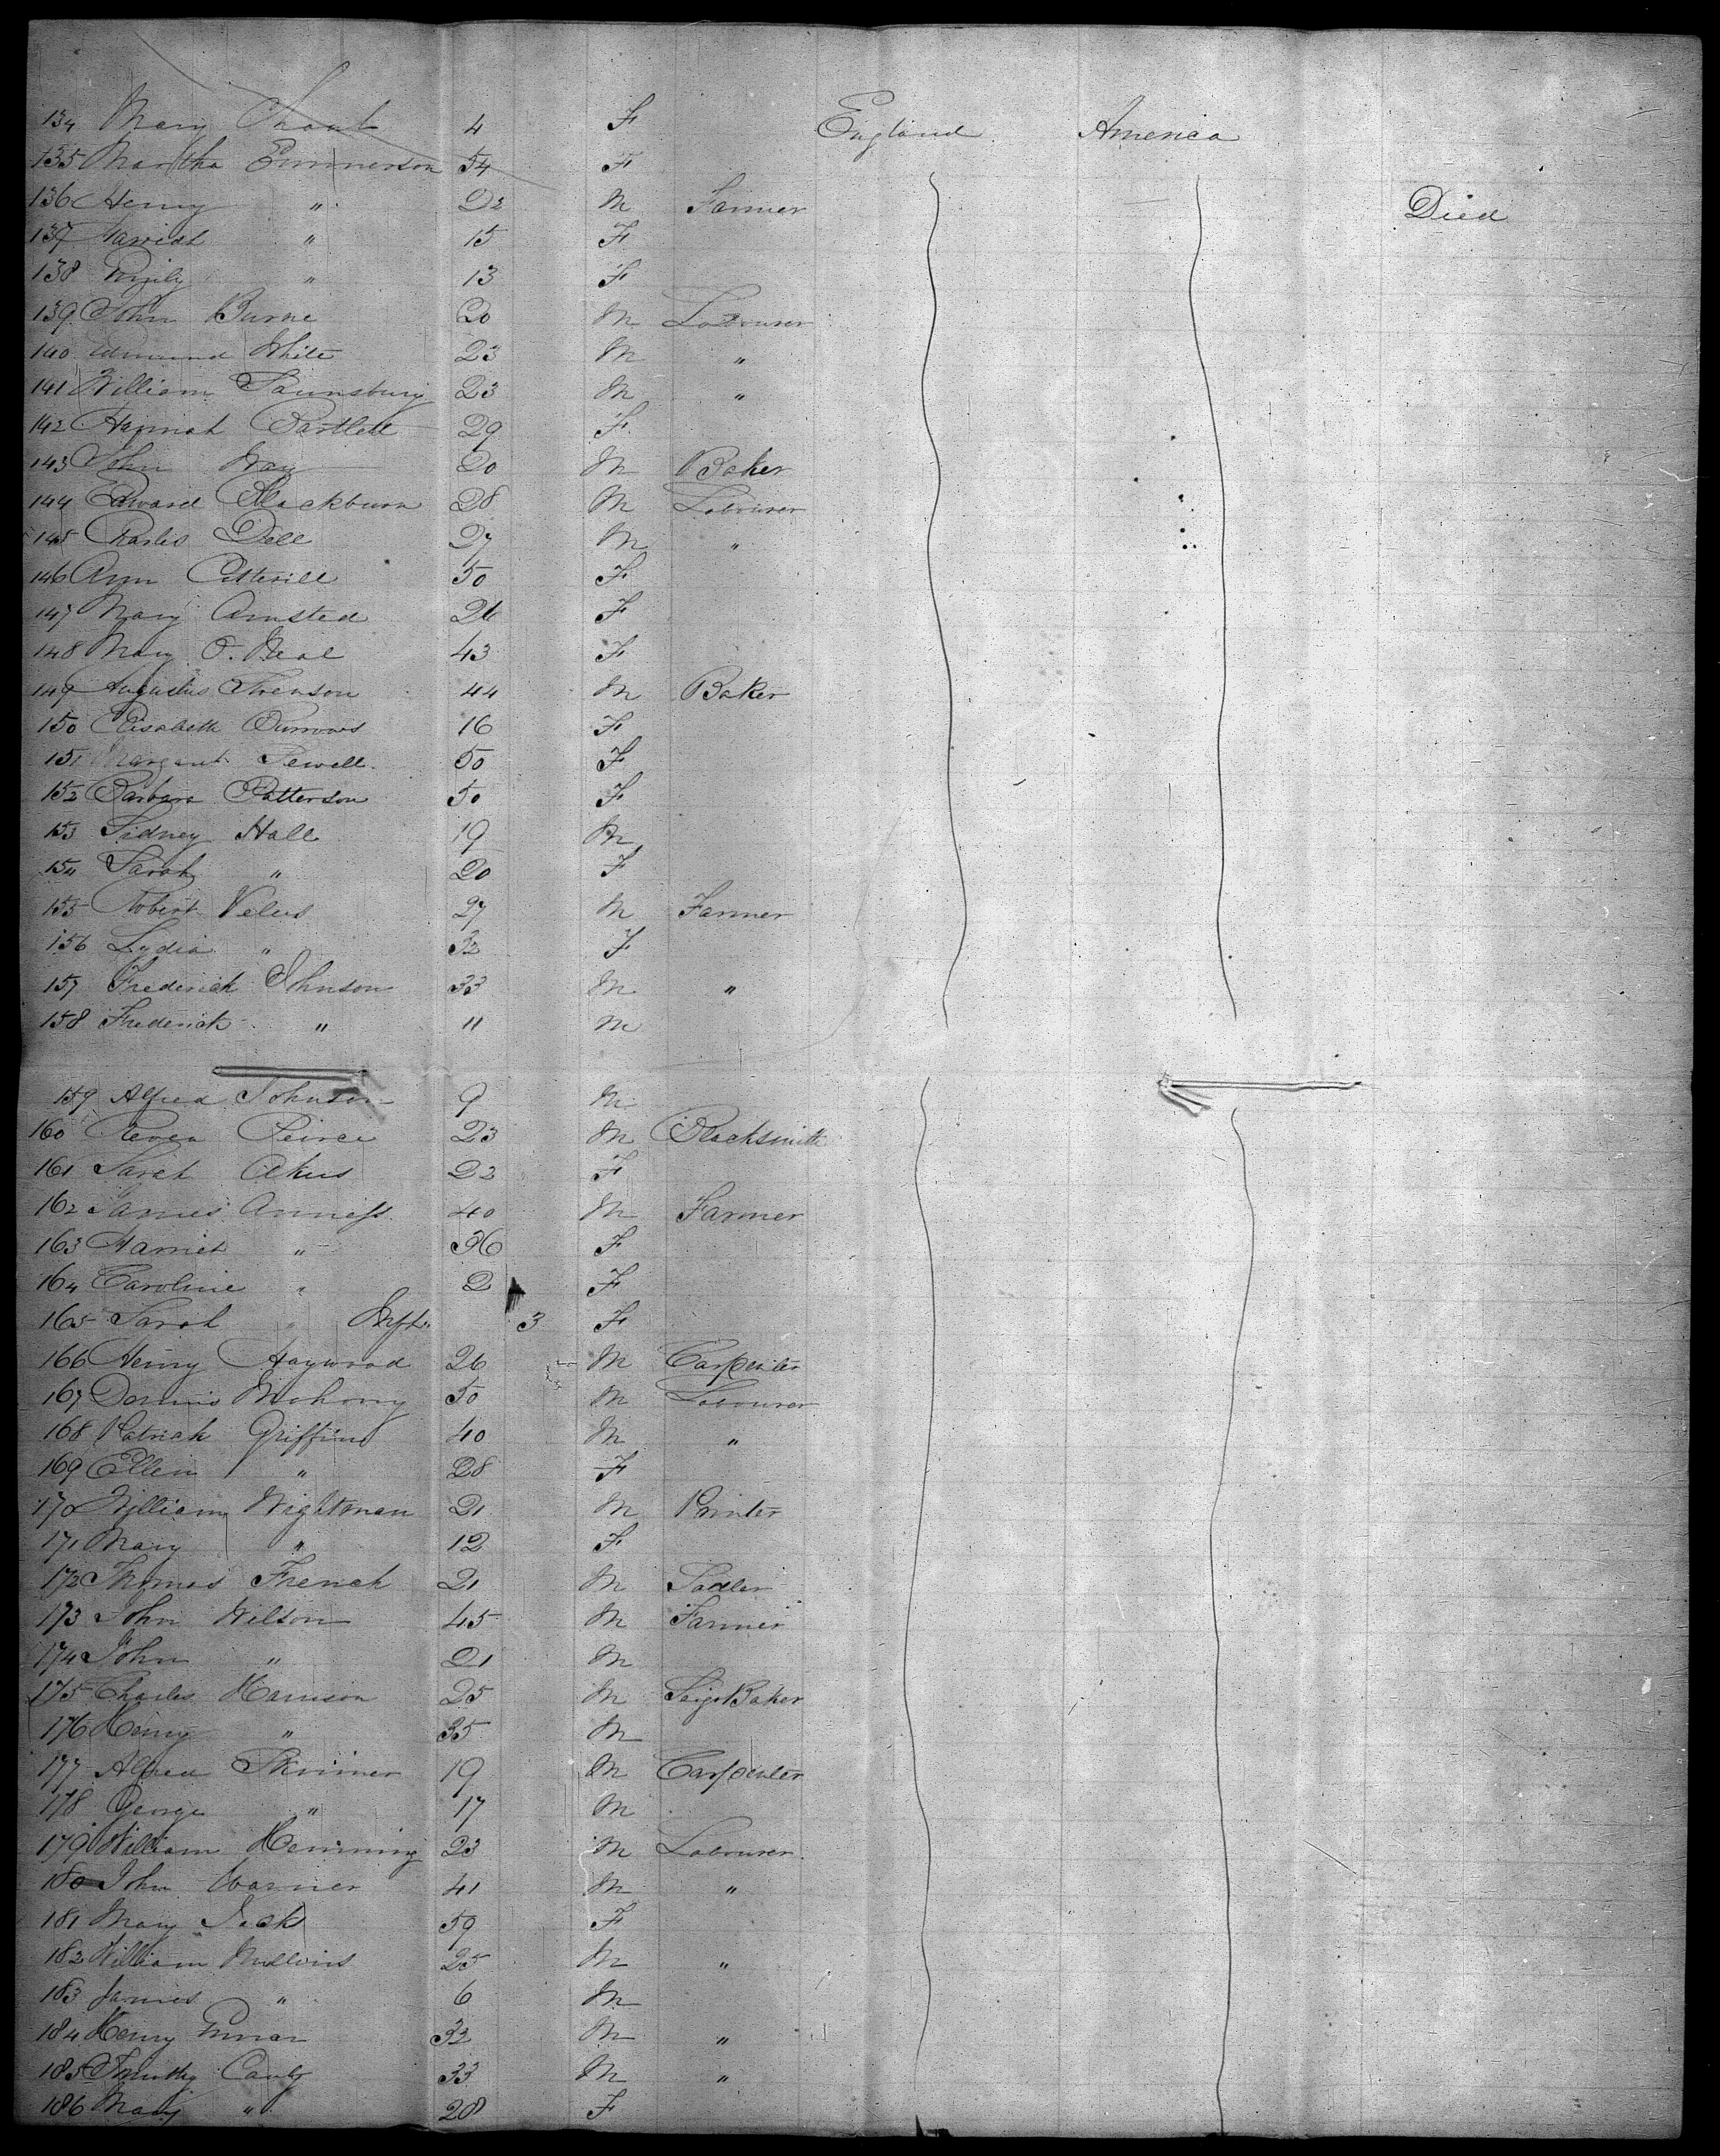 134 Mary 4 F England America
135 Martha Emmerson 54 F
136 Henry " 22 M Farmer Died
137 Harriet " 15 F
138 Emily " 13 F
139 John Burne 20 M Labourer
140 Edmund White 23 M "
141 William 23 M "
142 Hannah Bartlett 29 F
143 John Way 20 M Baker
144 Edward Blackburn 28 M Labourer
145 Charles Dell 27 M "
146 Ann Cotterill 50 F
147 Mary Armsted 26 F
148 Mary O. Neal 43 F
149 Augustus Swenson 44 M Baker
150 Elisabeth Burrows 16 F
151 Margaret Sewell 50 F
152 Barbara Patterson 50 F
153 Sidney Hall 19 M
154 Sarah " 20 F
155 Robert 27 M Farmer
156 Lydia " 32 F
157 Frederick Johnson 33 M "
158 Frederick " 11 M
159 Alfred Johnson 9 M
160 Peirce 23 M Blacksmith
161 Sarah 22 F
162 James Anness 40 M Farmer
163 Harriet " 36 F
164 Caroline " 2 F
165 Sarah " Inft. 3 F
166 Henry Haywood 26 M Carpenter
167 Dennis Mahony 50 M Labourer
168 Patrick Griffins 40 M "
169 Ellen " 28 F
170 William Wightman 21 M Printer
171 Mary " 12 F
172 Thomas French 21 M Sadler
173 John Wilson 45 M Farmer
174 John " 21 M
175 Charles Harrison 25 M Baker
176 Henry " 35 M
177 Alfred Skinner 19 M Carpenter
178 George " 17 M
179 William Hemming 23 M Labourer
180 John Warner 41 M "
181 Mary Jack 59 F
182 William Mullins 25 M "
183 James " 6 M
184 Henry 32 M "
185 Timothy 33 M "
186 Mary " 28 F